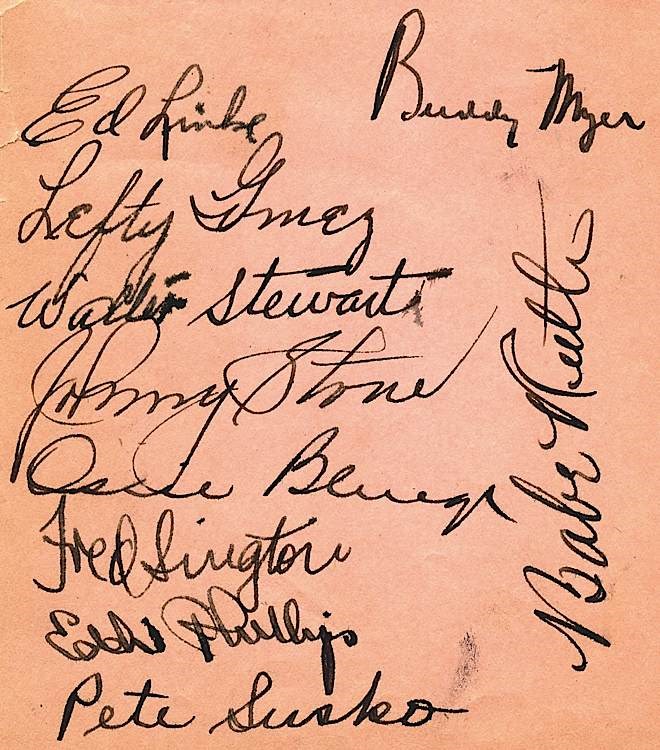 Buddy Myer
Ed Linke
Lefty Gomez
Walter Stewart
Johnny Stone
Ossie Bluege
Fred Sington
Eddie Phillips
Pete Susko
Babe Ruth